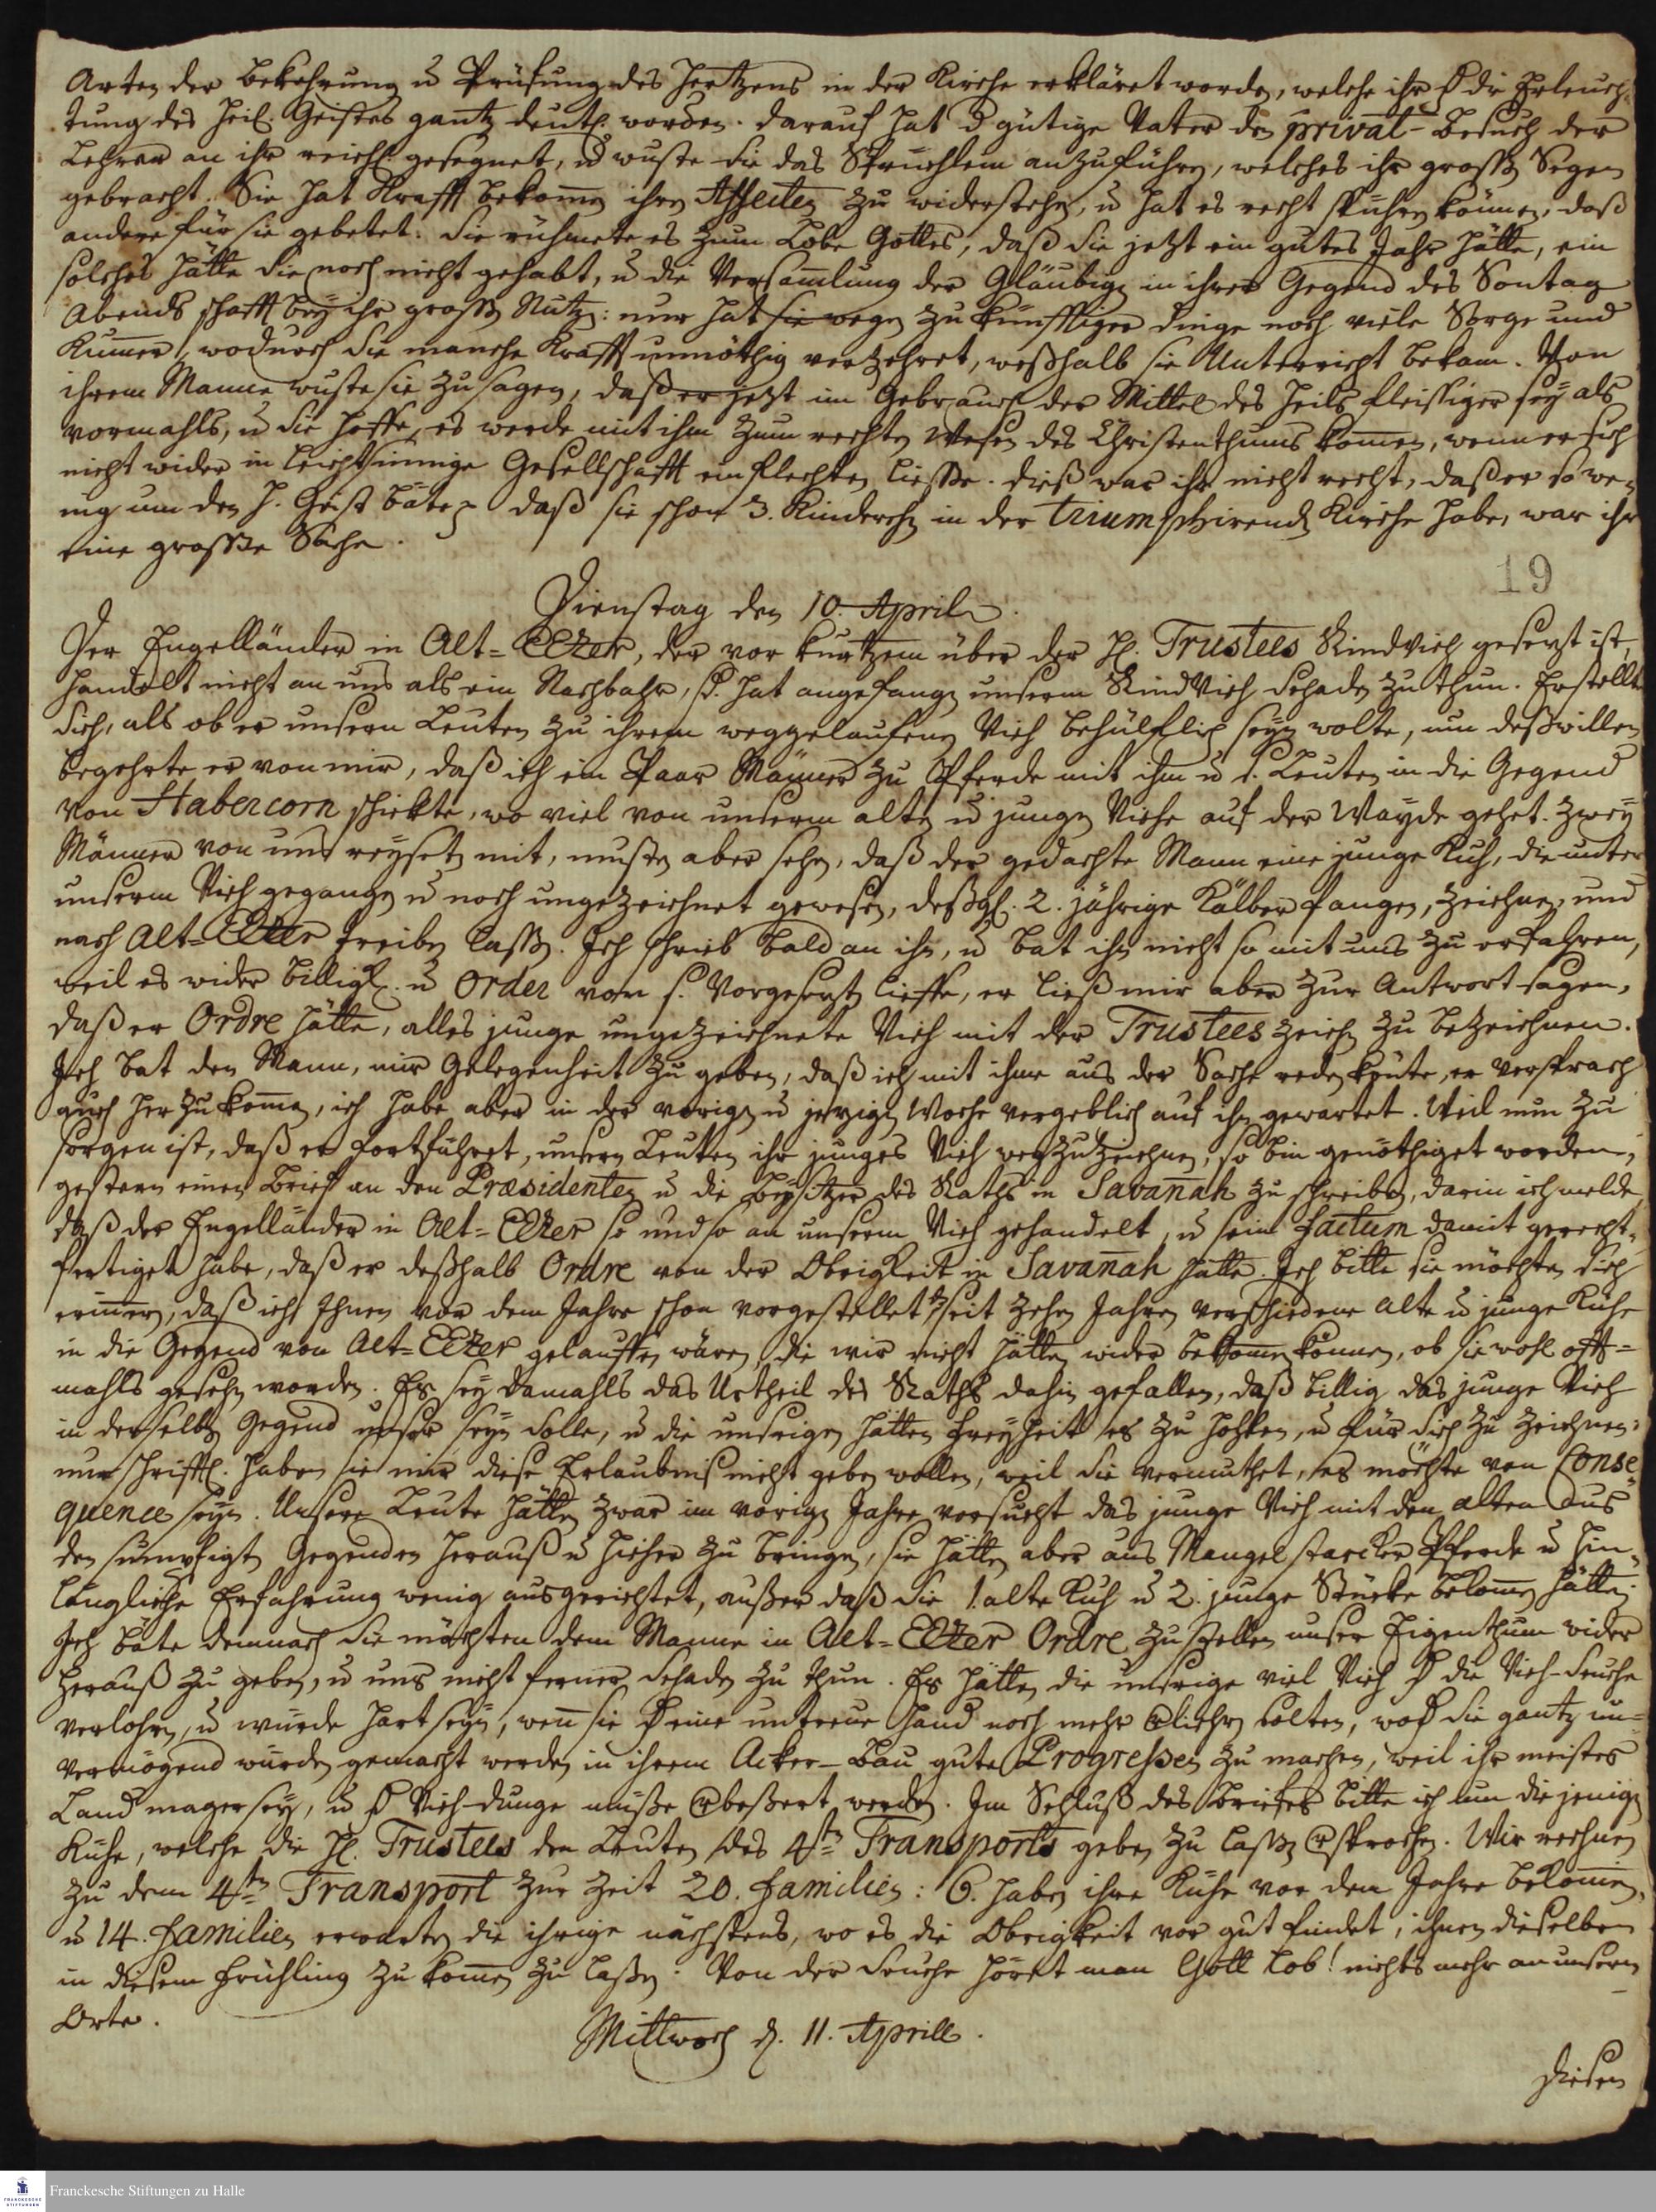 Arten der Bekehrung u Prüfung des Hertzens in der Kirche erkläret worden, welche ihr die Erleuch-
tung des Heil. Geistes gantz deutl. worden. darauf hat d gütige Vater den privat-Besuch der
Lehrer an ihr reichl gesegnet, u wuste sie das Sprüchlein anzuführen, welches ihr grossen Segen
gebracht. Sie hat Krafft bekomen ihren Affecten zu widerstehen, u hat es recht spühren können, daß
andere für sie gebetet. Sie rühmete es zum Lobe Gottes, daß sie jetzt ein gutes Jahr hätte, ein
solches hätte sie noch nicht gehabt, u die Versamlung der Gläubigen in ihrer Gegend des Sontag
Abends schafft bey ihr grossen Nutzen: nur hat sie wegen zukünfftiger dinge noch viele Sorge und
Kumer, wodurch sie manche Krafft unnöthig verzehret, weßhalb sie Unterricht bekam. Von
ihrem Manne wuste sie zu sagen, daß er jetzt im Gebrauch der Mittel des Heils fleissiger sey als
vormahls, u sie hoffe, es werde mit ihm zum rechten Wesen des Christenthums komen, wenn er sich
nicht wider in leichtsinnige Gesellschafft einflechten liesse. dieß war ihr nicht recht, daß er so we-
nig um den H. Geist bäte; daß sie schon 3. Kinderchen in der triumphirenden Kirche habe, war ihr
eine grosse Sache.
19
Dienstag den 10. April.
Der Engelländer in Alt-Ebenezer, der vor kurtzem über der H. Trustees Rindvieh gesetzt ist,
handelt nicht an uns als ein Nachbahr, sd. hat angefangen unserm Rindvieh Schaden zu thun. Er stellte
sich, als ob er unsern Leuten zu ihrem weggelaufenen Vieh behülflich seyn wolte, um deßwillen
begehrte er von mir, daß ich ein Paar Männer zu Pferde mit ihm u s. Leuten in die Gegend
von Habercorn schickte, wo viel von unserm alten u jungen Viehe auf der Wayde gehet. Zwey
Männer von uns reyseten mit, musten aber sehen, daß der gedachte Mann eine junge Kuh, die unter
unserm Vieh gegangen u noch ungezeichnet gewesen, deßgl. 2. jährige Kälber fangen, zeichnen, und
nach Alt-Ebenezer treiben lassen. Ich schrieb bald an ihn, u bat ihn nicht so mit uns zu verfahren,
weil es wider billigk. u Order von s. Vorgesezten lieffe, er ließ mir aber zur Antwort sagen,
daß er Ordre hätte, alles junge ungezeichnete Vieh mit der Trustees Zeichen zu bezeichnen.
Ich bat den Mann, mir Gelegenheit zu geben, daß ich mit ihme aus der Sache reden könte, er versprach
auch her zu komen, ich habe aber in der vorigen u jezigen Woche vergeblich auf ihn gewartet. Weil nun zu
sorgen ist, daß er fortfähret, unsern Leuten ihr junges Vieh wegzuzeichnen, so bin genöthiget worden,
gestern einen Brief an den Præsidenten u die Beysitzer des Raths in Savañah zu schreiben, darin ich melde,
daß der Engelländer in Alt-Ebenezer so und so an unserm Vieh gehandelt, u sein factum damit gerecht-
fertiget habe, daß er deßhalb Ordre von der Obrigkeit in Savañah hätte. Ich bitte sie möchten sich
erinern, daß ichs Ihnen vor dem Jahre schon vorgestellet, seit zehen Jahren verschiedene alte u junge Kühe
in die Gegend von Alt-Ebenezer gelauffen wären, die wir nicht hätten wider bekomen können, ob sie wohl oft-
mahls gesehen worden. Es sey damahls das Urtheil des Raths dahin gefallen, daß billig das junge Vieh
in derselben Gegend unser seyn solle, u die unsrigen hätten Freyheit es zu hohlen, u für sich zu zeichnen:
nur schrifftl. haben sie mir diese Erlaubniß nicht geben wollen, weil sie vermuthet, es möchte von Conse-
quence seyn. Unsere Leute hätten zwar im vorigen Jahre versucht das junge Vieh mit den alten aus
den sumpfigten Gegenden herauß u hieher zu bringen, sie hätten aber aus Mangel starcker Pferde u hin-
länglicher Erfahrung wenig ausgerichtet, außer daß sie 1 alte Kuh u 2. junge Stücke bekomen hätten.
Ich bäte demnach sie möchten dem Manne in Alt-Ebenezer Ordre zustellen unser Eigenthum wider
herauß zu geben, u uns nicht ferner Schaden zu thun. Es hätten die unsrige viel Vieh die Vieh-Seuche
verlohren, u würde hart seyn, wen sie eine untreue Hand noch mehr verliehren solten, wod sie gantz un-
vermögend würden gemacht werden in ihrem Acker-Bau gute Progressen zu machen, weil ihr meistes
Land mager sey, u Vieh-dunge müsse verbessert werden. Im Schluß des Briefes bitte ich um die jenigen
Kühe, welche die H. Trustees den Leuten des 4ten Transports geben zu lassen versprochen. Wir rechnen
zu dem 4ten Transport zur Zeit 20. Familien: 6. haben ihre Kühe vor dem Jahre bekomen,
u 14. Familien erwarten die ihrige nächstens, wo es die Obrigkeit vor gut findet, ihnen dieselben
in diesem Frühling zu komen zu lassen. Von der Seuche höret man Gott Lob! nichts mehr an unserm
Orte.
Mittwoch d. 11. Aprill.
diesen
Franckesche Stiftungen zu Halle